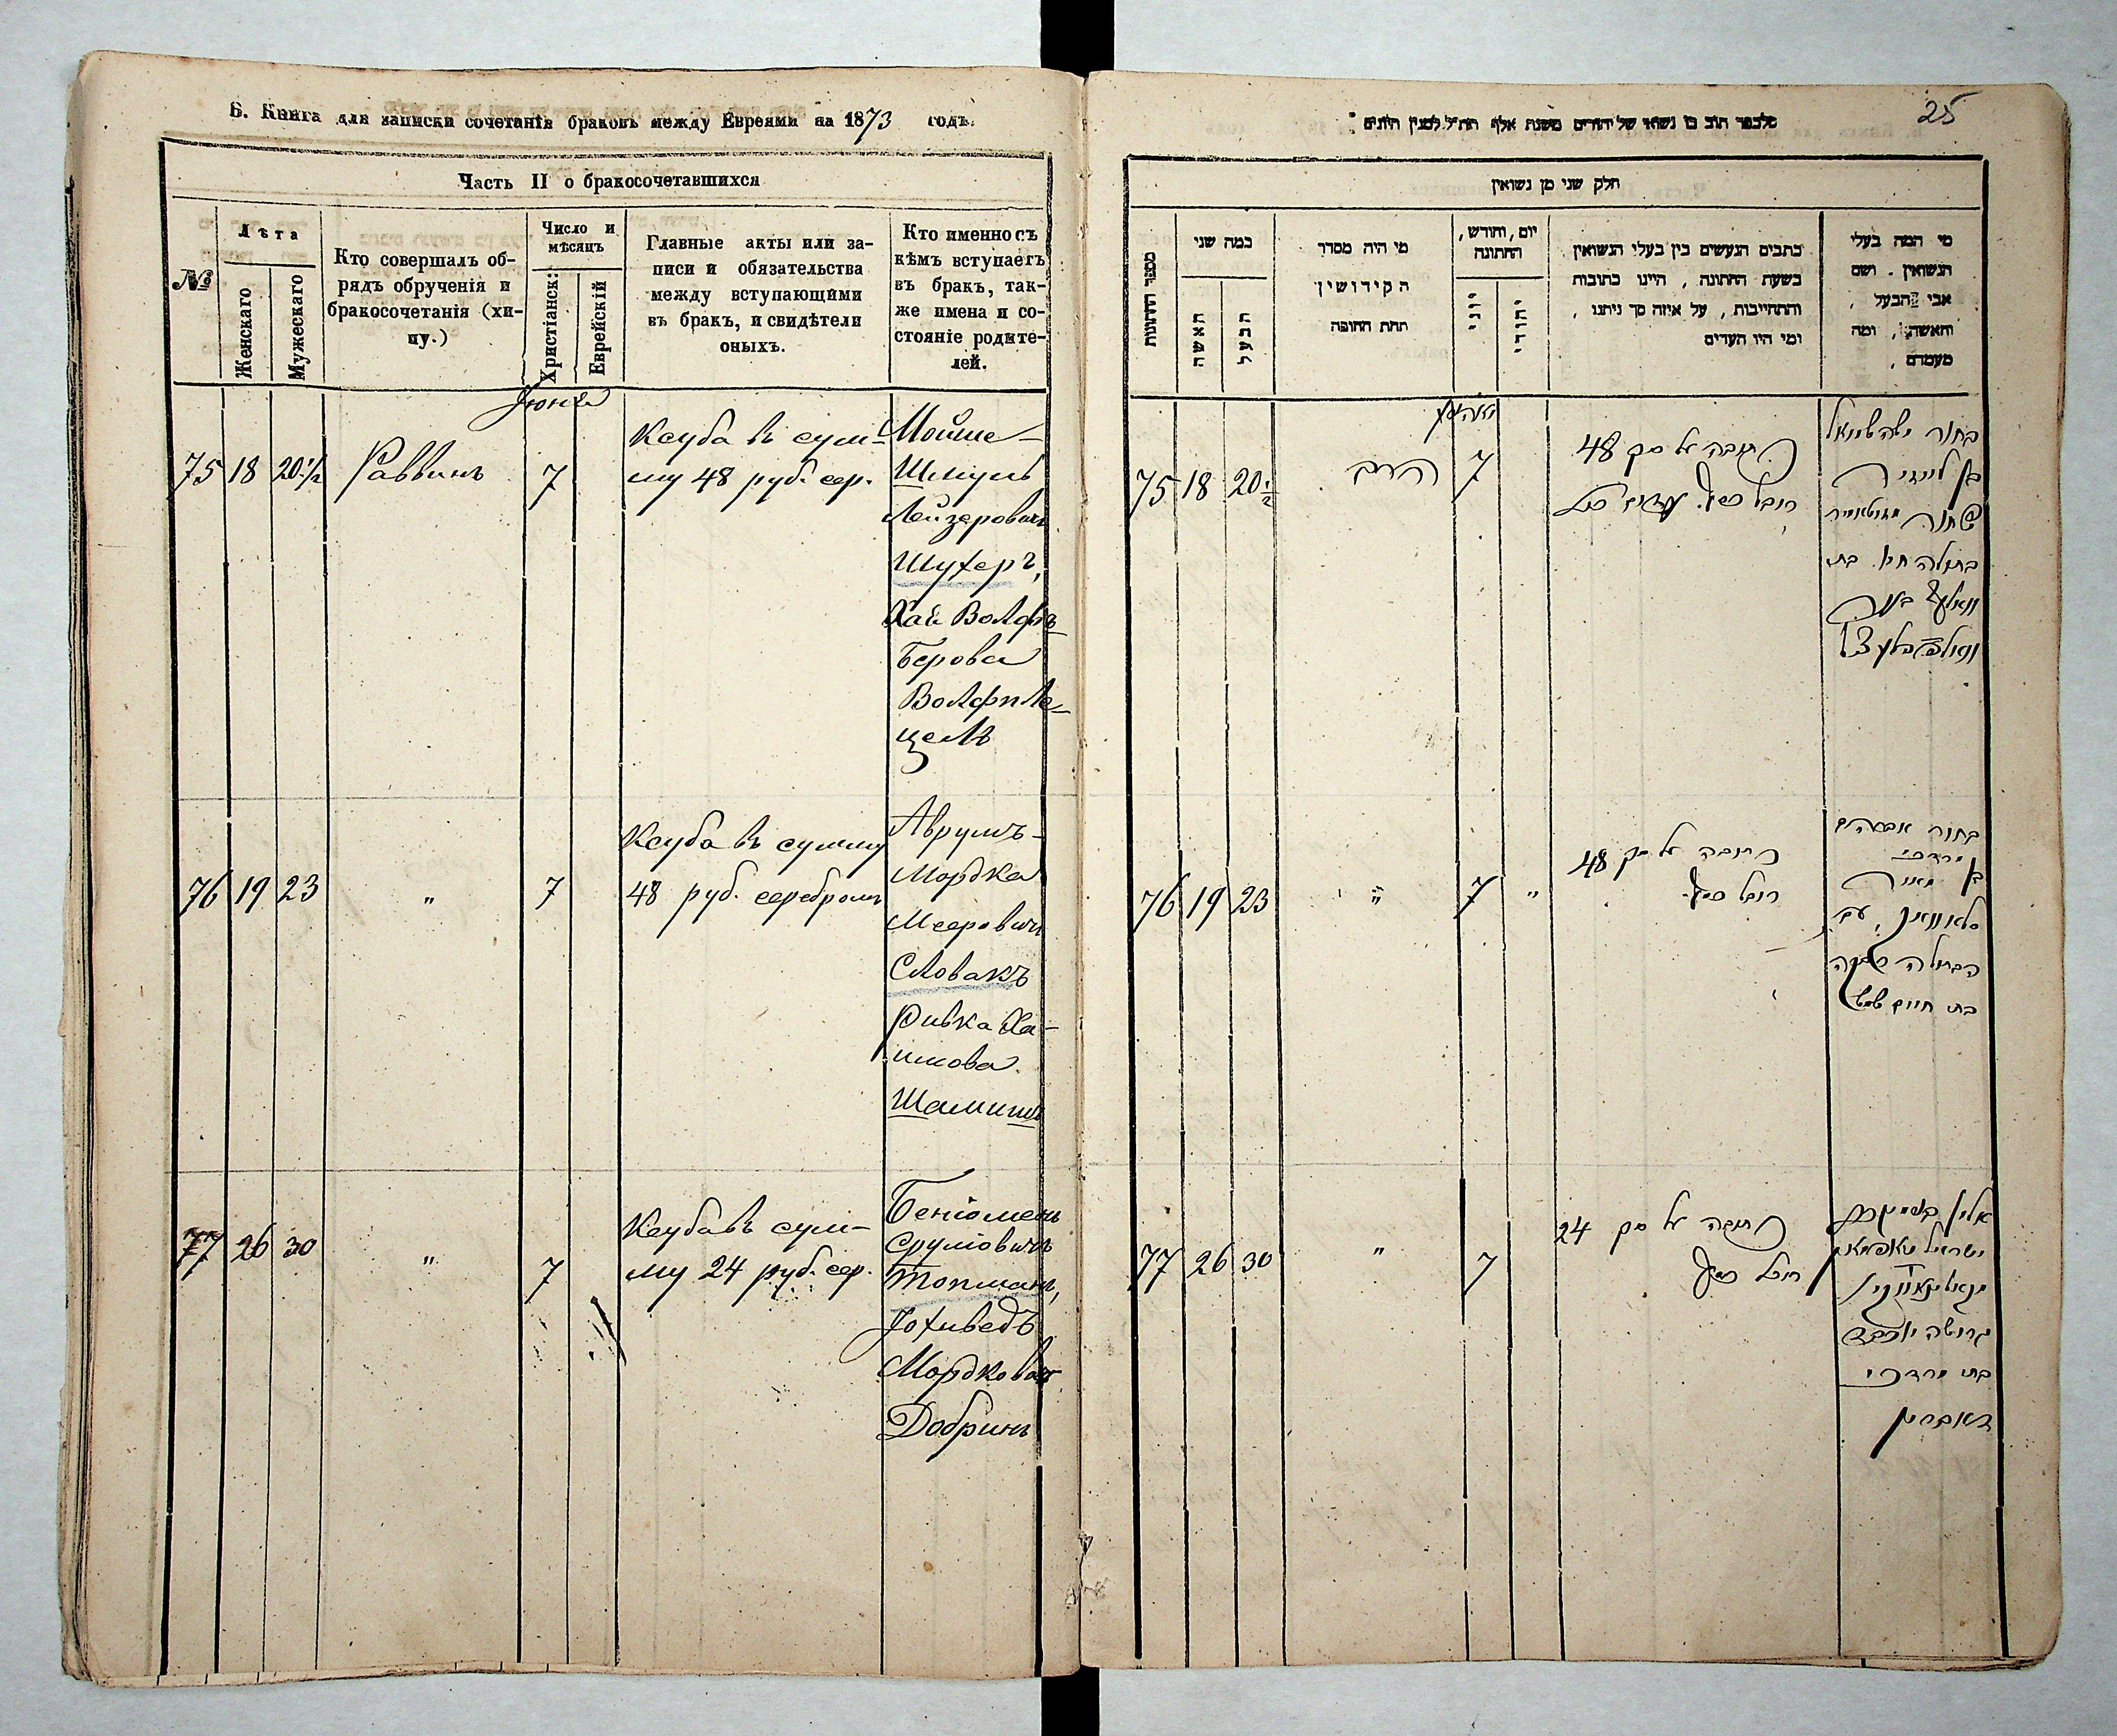 Б. Книга для записки сочетанія браковъ между Евреями на 1873 годъ.
Часть II о бракосочетавшихся
№
Лѣта
Женскаго
Мужескаго
Кто совершалъ об-
рядъ обрученія и
бракосочетанія (хи-
пу.)
Число и
мѣсяцъ
Христіанск:
Еврейскій
Главные акты или за-
писи и обязательства
между вступающими
въ бракъ, и свидѣтели
оныхъ.
Кто именно съ
кѣмъ вступаетъ
въ бракъ, так-
же имена и со-
стояніе родите-
лей.
Іюня
75 18 20 1/2 Раввинъ 7
Ксуба въ сум-
му 48 руб. сер.
Мойше-
Шмуль
Лейзеровичъ
Шухеръ,
Хая Вольфъ
Берова
Вольфпле-
цель
76 19 23 " 7
Ксуба въ сумму
48 руб. серебромъ
Аврумъ-
Мордка
Мееровичъ
Словакъ
Ривка Ха-
имова
Шамишъ
77 26 30 " 7
Ксуба въ сум-
му 24 руб. сер.
Беніоменъ
Сруліовичъ
Топманъ,
Іохиведъ
Мордкова
Добринъ
25
חלק שני מן נשואין
מספר החתונות
כמה שני
האשה
הבעל
מי היה מסדר
הקידושין
תחת החופה
יום, וחודש,
החתונה
יוני
יהודי
כתבים הנעשים בין בעלי הנשואין
בשעת החתונה, היינו כתובות
והתחייבות, על איזה סך ניתנו,
ומי היו העדים
מי המה בעלי
הנשואין. ושם
אבי הבעל,
והאשה, ומה
מעמדם.
75 18 20 1/2 הרב 7
כתובה על סך 48
רובל כסף
בתולה חי' בת
76 19 23 " 7 "
כתובה על סך 48
רובל כסף
בחור אברהם
מרדכי
בן מאיר
סלאוואק, עם
הבתולה רבקה
בת חיים שמש
77 26 30 " 7
כתובה על סך 24
רובל כסף
גרושה יוכבד
בת מרדכי
דאברין